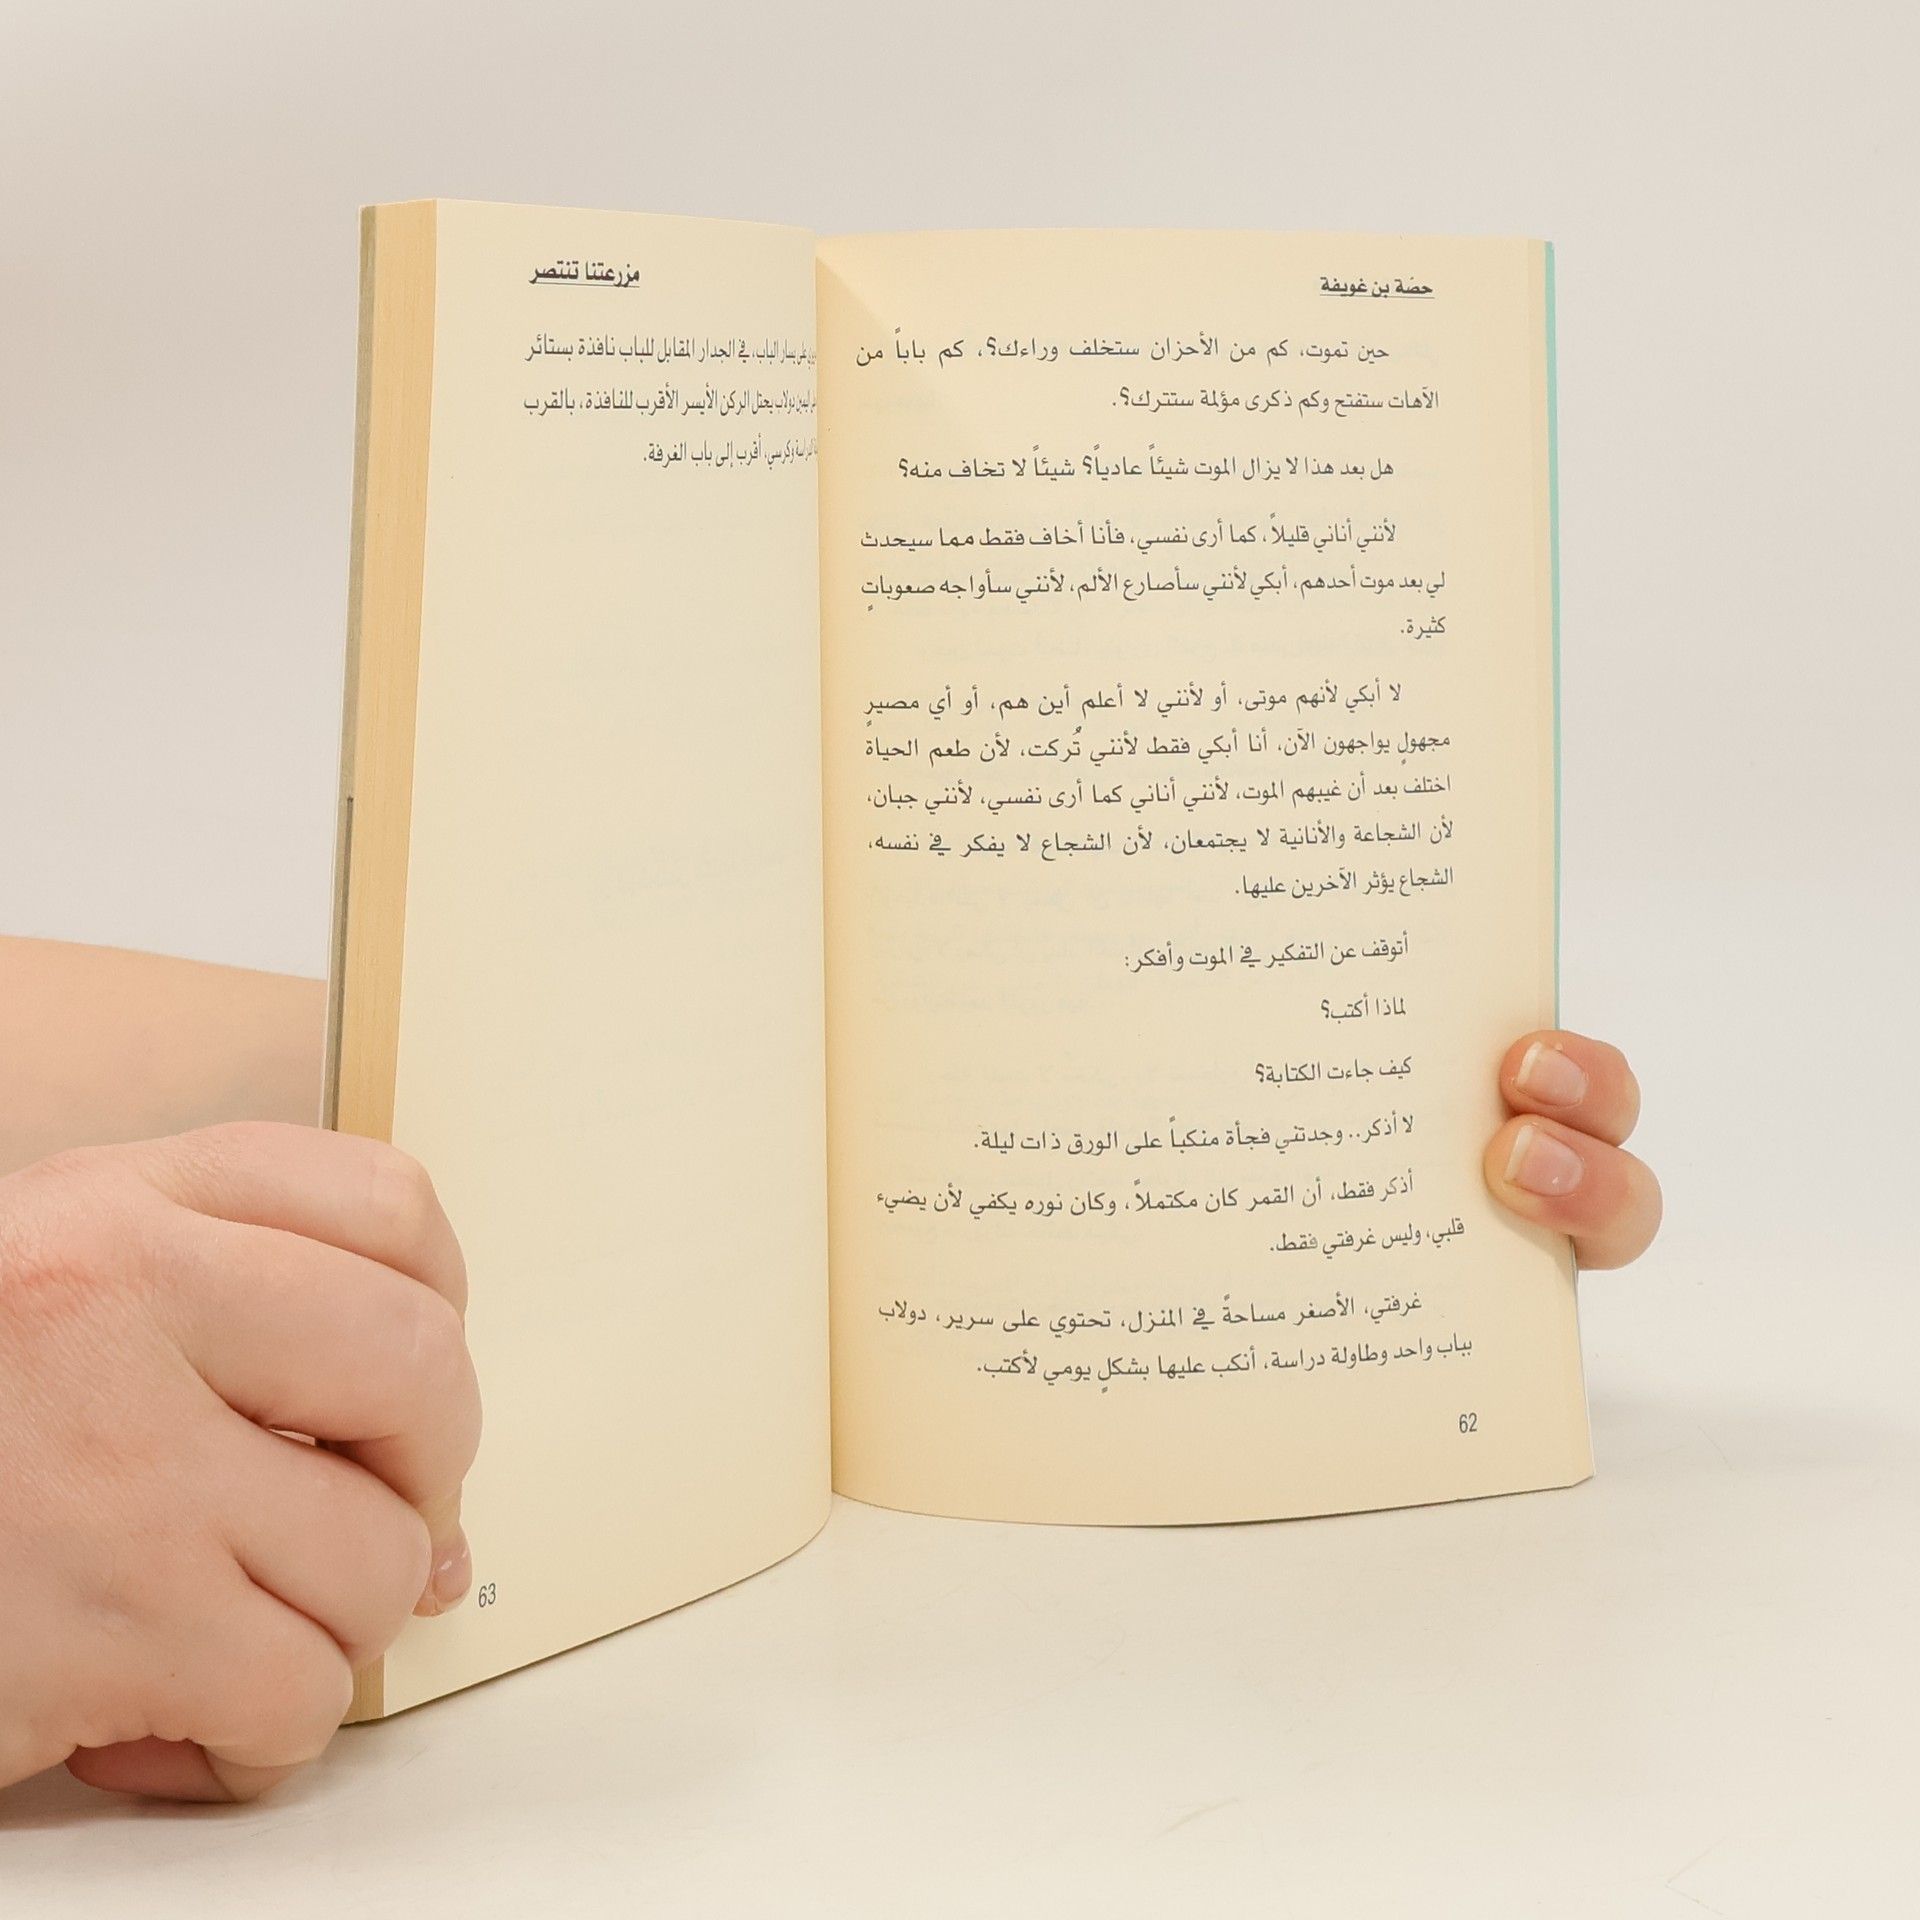 حصَة بن غويفة
حين تموت، كم من الأحزان ستخلف وراءك؟، كم باباً من
الآهات ستفتح وكم ذكرى مؤلمة ستترك؟.
هل بعد هذا لا يزال الموت شيئاً عادياً؟ شيئاً لا تخاف منه؟
لأنني أناني قليلاً، كما أرى نفسي، فأنا أخاف فقط مما سيحدث
لي بعد موت أحدهم، أبكي لأنني سأصارع الألم، لأنني سأواجه صعوباتٍ
كثيرة.
لا أبكي لأنهم موتى، أو لأنني لا أعلم أين هم، أو أي مصيرٍ
مجهولٍ يواجهون الآن، أنا أبكي فقط لأنني تُركت، لأن طعم الحياة
اختلف بعد أن غيبهم الموت، لأنني أناني كما أرى نفسي، لأنني جبان،
لأن الشجاعة والأنانية لا يجتمعان، لأن الشجاع لا يفكر في نفسه،
الشجاع يؤثر الآخرين عليها.
أتوقف عن التفكير في الموت وأفكر:
لماذا أكتب؟
كيف جاءت الكتابة؟
لا أذكر.. وجدتني فجأة منكباً على الورق ذات ليلة.
أذكر فقط، أن القمر كان مكتملاً، وكان نوره يكفي لأن يضيء
قلبي، وليس غرفتي فقط.
غرفتي، الأصغر مساحةً في المنزل، تحتوي على سرير، دولاب
بباب واحد وطاولة دراسة، أنكب عليها بشكلٍ يومي لأكتب.
62
مزرعتنا تنتصر
على يسار الباب، في الجدار المقابل للباب نافذة بستائر
دولاب يحتل الركن الأيسر الأقرب للنافذة، بالقرب
وكرسي، أقرب إلى باب الغرفة.
63